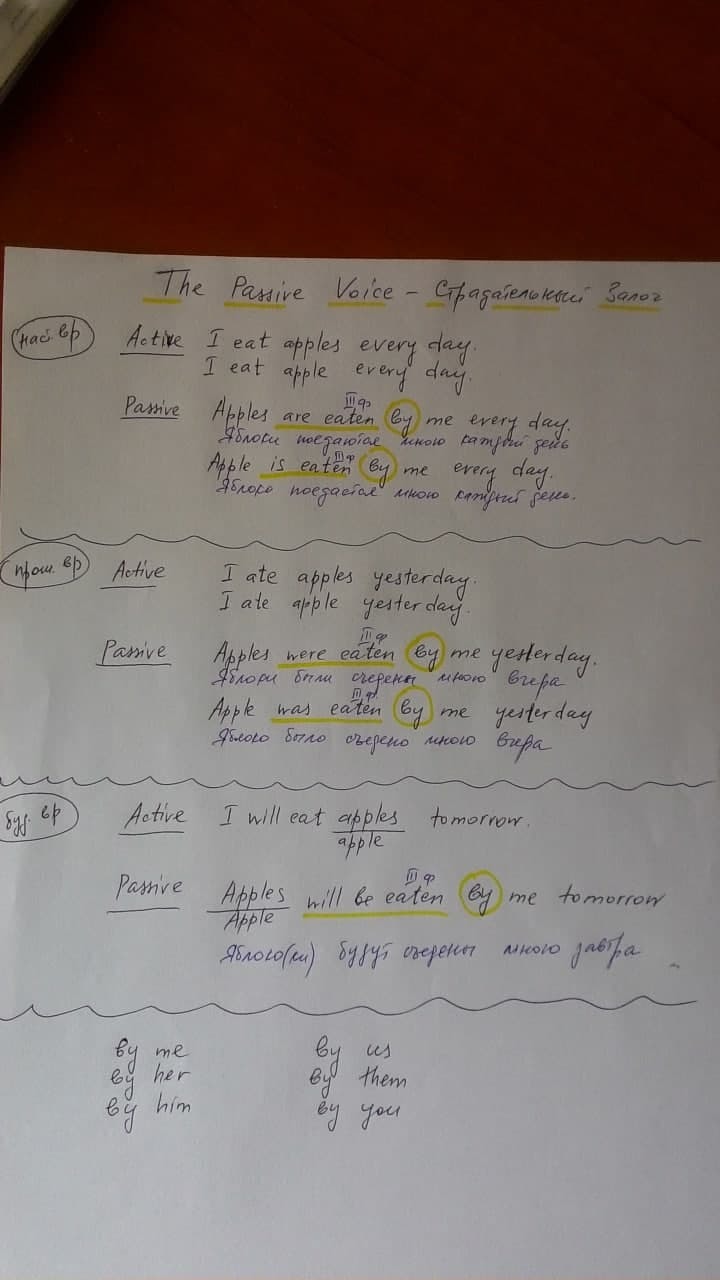 The Passive Voice – Страдательный Залог
наст. вр Active I eat apples every day.
I eat apple every day.
Passive Apples are eaten by me every day.
III ф
Яблоки поедаются мною каждый день
Apple is eaten by me every day.
III ф
Яблоко поедается мною каждый день.
прош. вр Active I ate apples yesterday.
I ate apple yesterday.
III ф
Passive Apples were eaten by me yesterday.
Яблоки были съедены мною вчера
III ф
Apple was eaten by me yesterday
Яблоко было съедено мною вчера
буд. вр Active I will eat apples tomorrow.
apple
III ф
Passive Apples will be eaten by me tomorrow
Apple
Яблоко(ки) будут съедены мною завтра
by me by us
by her by them
by him by you